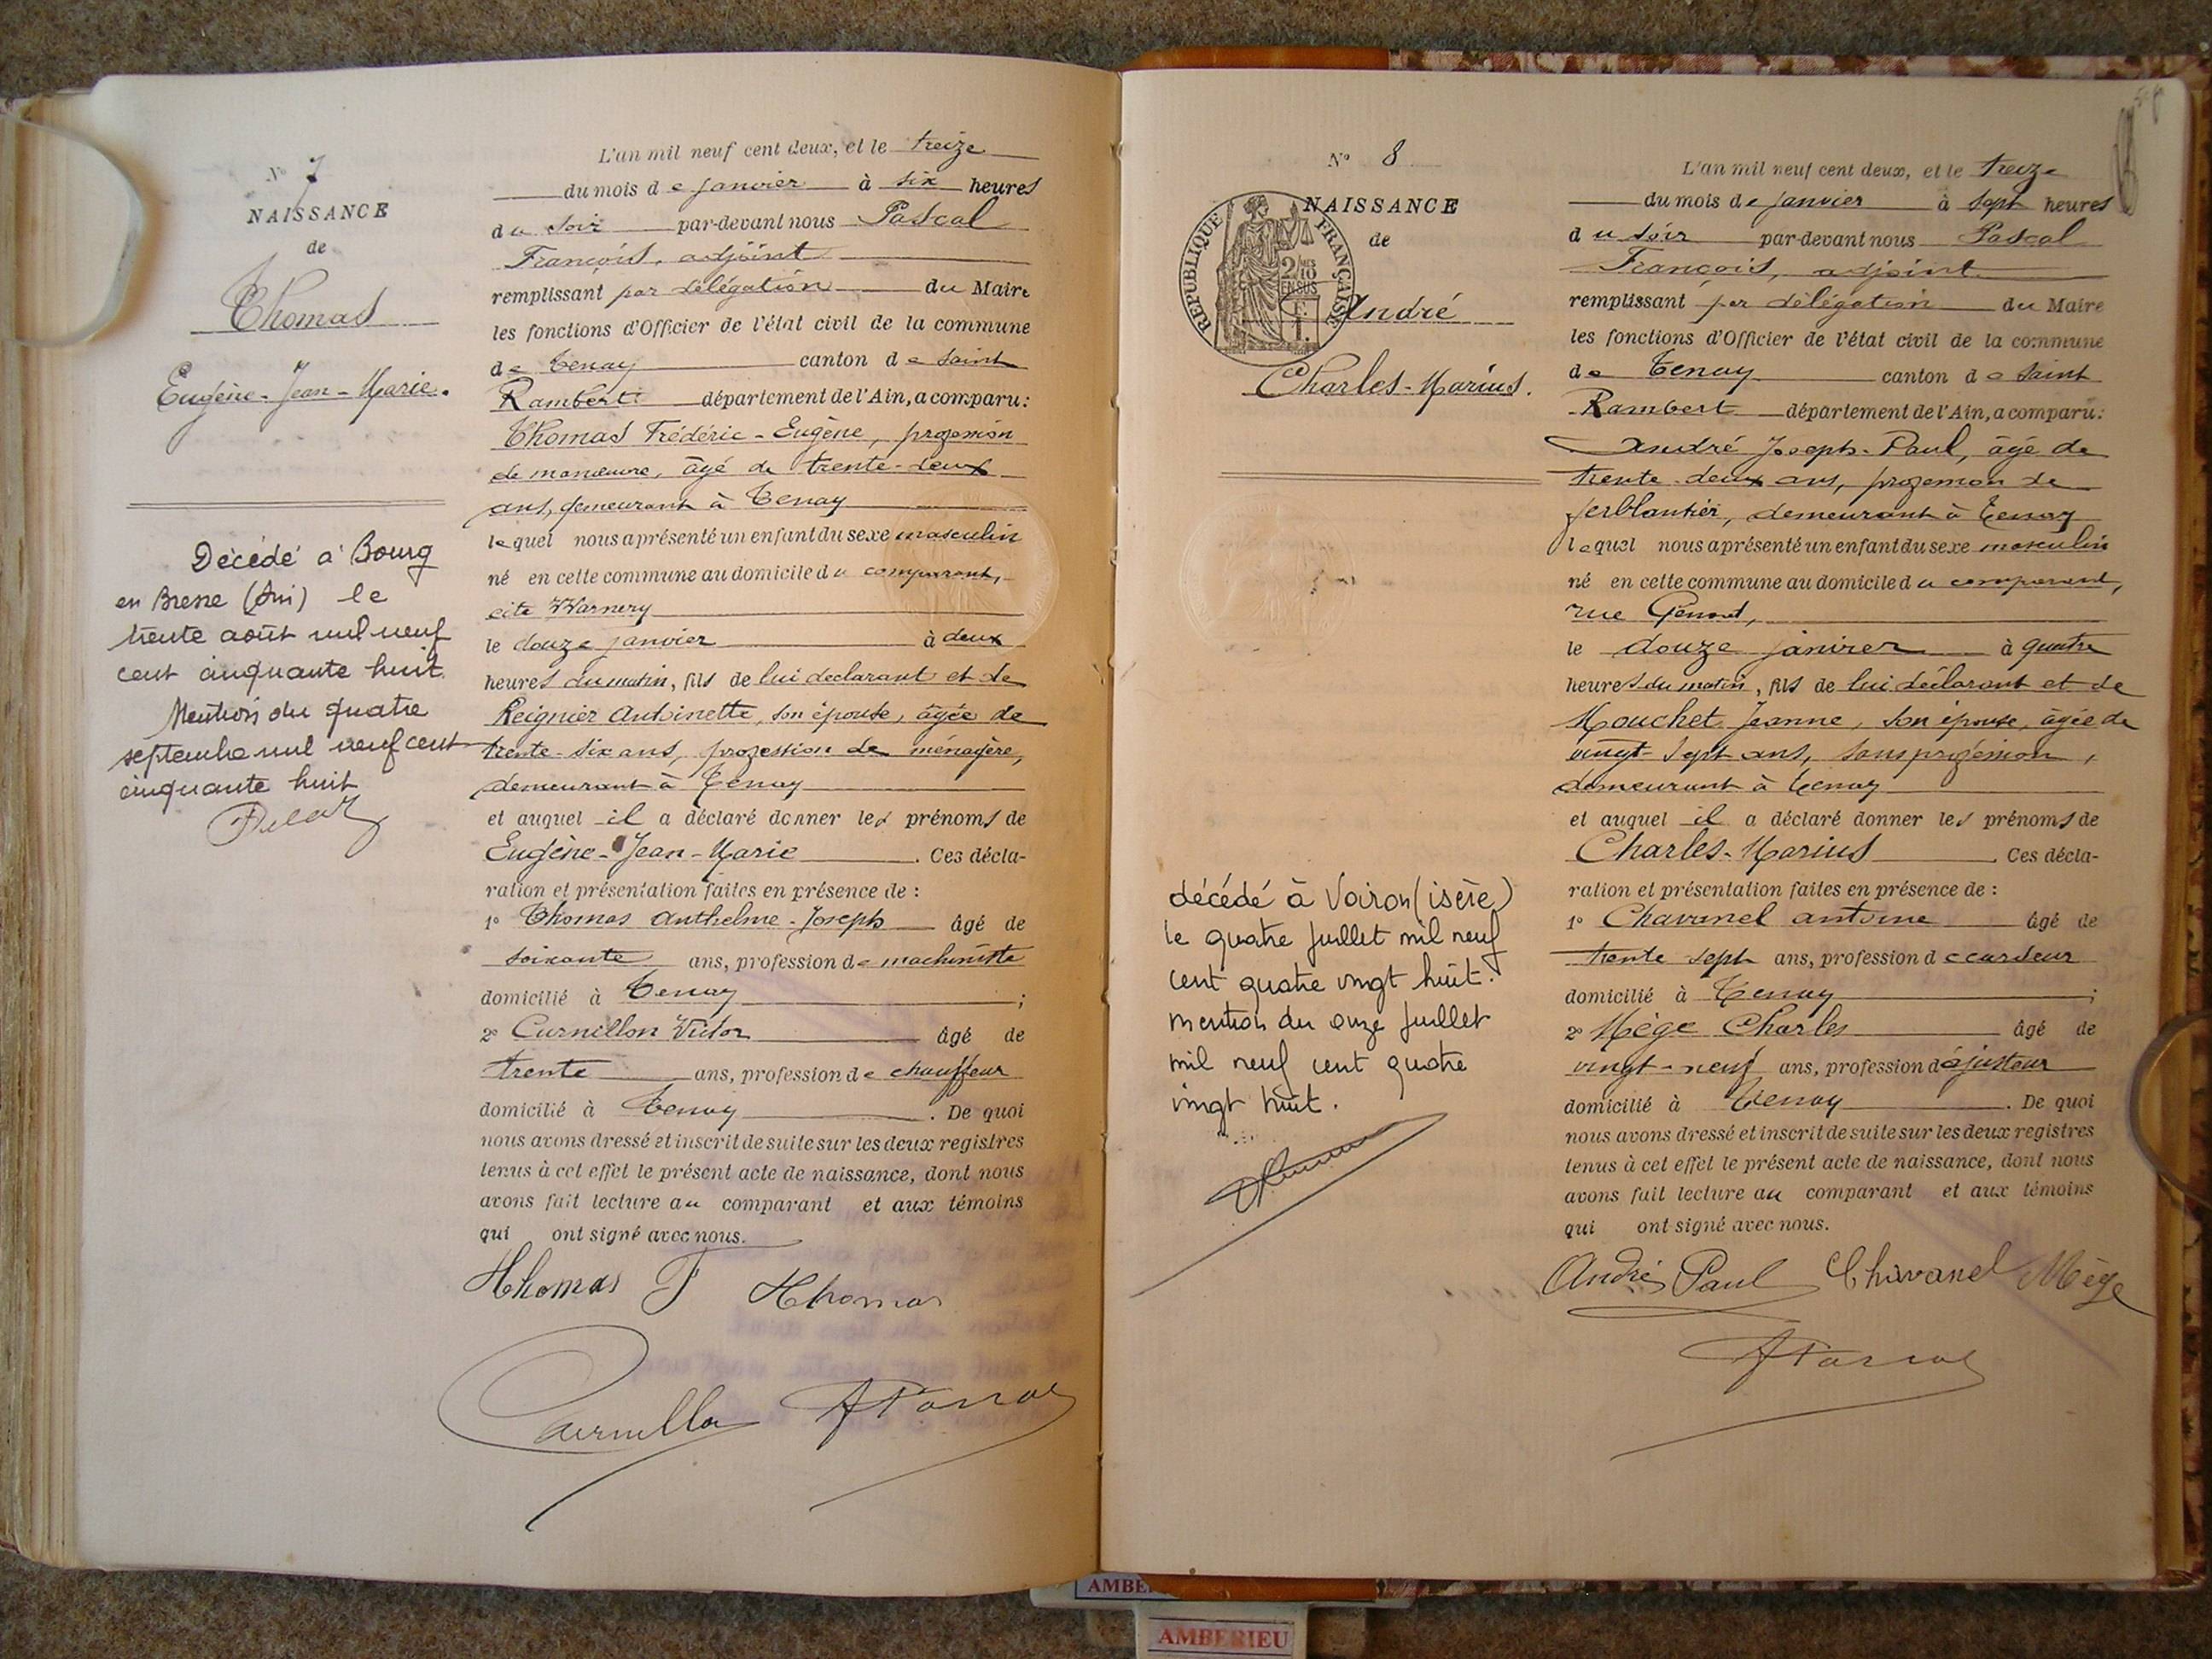 N° 7
NAISSANCE
de
Thomas
Eugène-Jean-Marie.
Décédé à Bourg
en Bresse (Ain) le
trente août mil neuf
cent cinquante huit.
Mention du quatre
septembre mil neuf cent
cinquante huit
L'an mil neuf cent deux, et le treize
du mois de janvier à six heures
du soir par-devant nous Pascal
François, adjoint
remplissant par délégation du Maire
les fonctions d'Officier de l'état civil de la commune
de Tenay canton de Saint
Rambert département de l'Ain, a comparu:
Thomas Frédéric-Eugène, profession
de manœuvre, âgé de trente-deux
ans, demeurant à Tenay
lequel nous a présenté un enfant du sexe masculin
né en cette commune au domicile du comparant,
cité Warnery
le douze janvier à deux
heures du matin, fils de lui déclarant et de
Reignier Antoinette, son épouse, âgée de
trente-six ans, profession de ménagère,
demeurant à Tenay
et auquel il a déclaré donner les prénoms de
Eugène-Jean-Marie. Ces décla-
ration et présentation faites en présence de :
1° Thomas Anthelme-Joseph âgé de
soixante ans, profession de machiniste
domicilié à Tenay ;
2° Curnillon Victor âgé de
trente ans, profession de chauffeur
domicilié à Tenay. De quoi
nous avons dressé et inscrit de suite sur les deux registres
tenus à cet effet le présent acte de naissance, dont nous
avons fait lecture au comparant et aux témoins
qui ont signé avec nous.
Thomas F Thomas
N° 8
NAISSANCE
de
RÉPUBLIQUE FRANÇAISE
2/10
EN SUS
André
Charles-Marius.
décédé à Voiron (isère)
le quatre juillet mil neuf
cent quatre vingt huit.
mention du onze juillet
mil neuf cent quatre
vingt huit.
L'an mil neuf cent deux, et le treize
du mois de janvier à sept heures
du soir par-devant nous Pascal
François, adjoint
remplissant par délégation du Maire
les fonctions d'Officier de l'état civil de la commune
de Tenay canton de Saint
Rambert département de l'Ain, a comparu:
André Joseph-Paul, âgé de
trente-deux ans, profession de
ferblantier, demeurant à Tenay
lequel nous a présenté un enfant du sexe masculin
né en cette commune au domicile du comparant,
rue
le douze janvier à quatre
heures du matin, fils de lui déclarant et de
Mouchet Jeanne, son épouse, âgée de
vingt-sept ans, sans profession,
demeurant à Tenay
et auquel il a déclaré donner les prénoms de
Charles-Marius. Ces décla-
ration et présentation faites en présence de :
1° Chavanel antoine âgé de
trente sept ans, profession de cardeur
domicilié à Tenay ;
2° Mège Charles âgé de
vingt-neuf ans, profession d'ajusteur
domicilié à Tenay. De quoi
nous avons dressé et inscrit de suite sur les deux registres
tenus à cet effet le présent acte de naissance, dont nous
avons fait lecture au comparant et aux témoins
qui ont signé avec nous.
André Paul Chavanel Mège
AMBERIEU